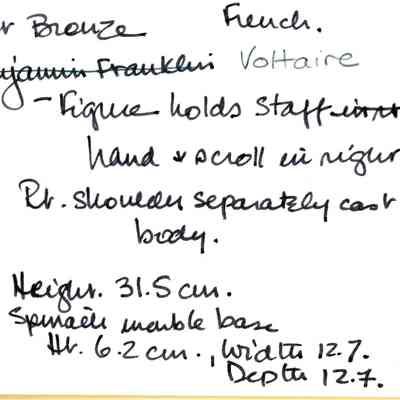 r Bronze French.
njamin Franklin Voltaire
- Figure holds staff in rt
hand & scroll in right
Rt. shoulder separately cast
body.
Height. 31.5 cm.
Spinach marble base
Ht. 6.2 cm., Width 12.7.
Depth 12.7.